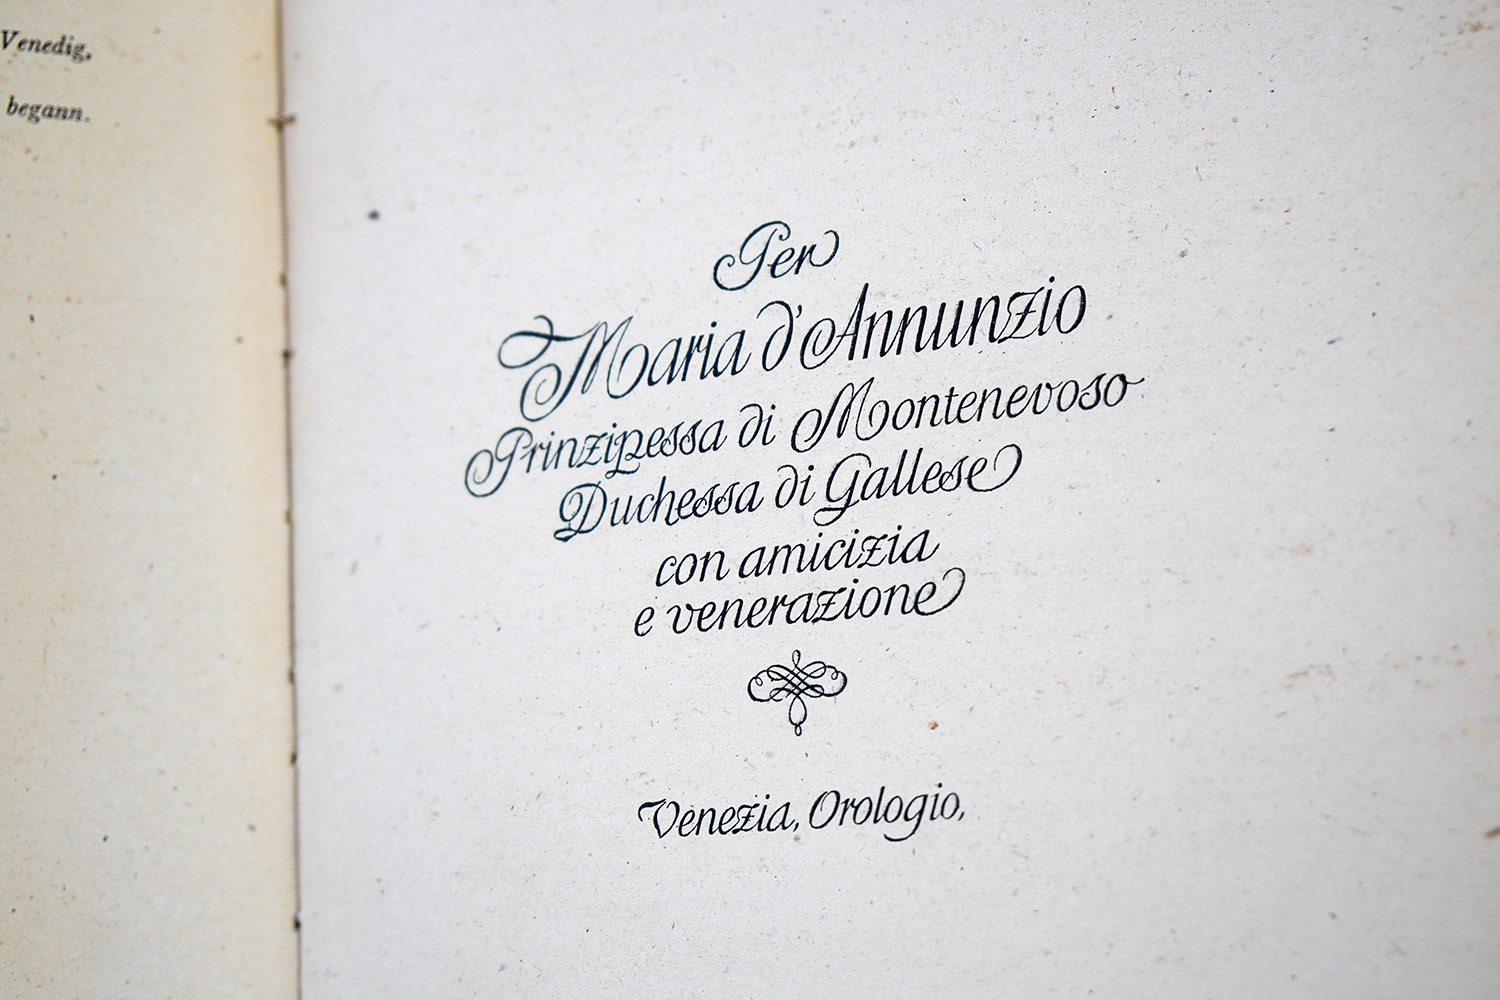 Venedig,
begann.
Per
Maria d'Annunzio
Prinzipessa di Montenevoso
Duchessa di Gallese
con amicizia
e venerazione
Venezia, Orologio,